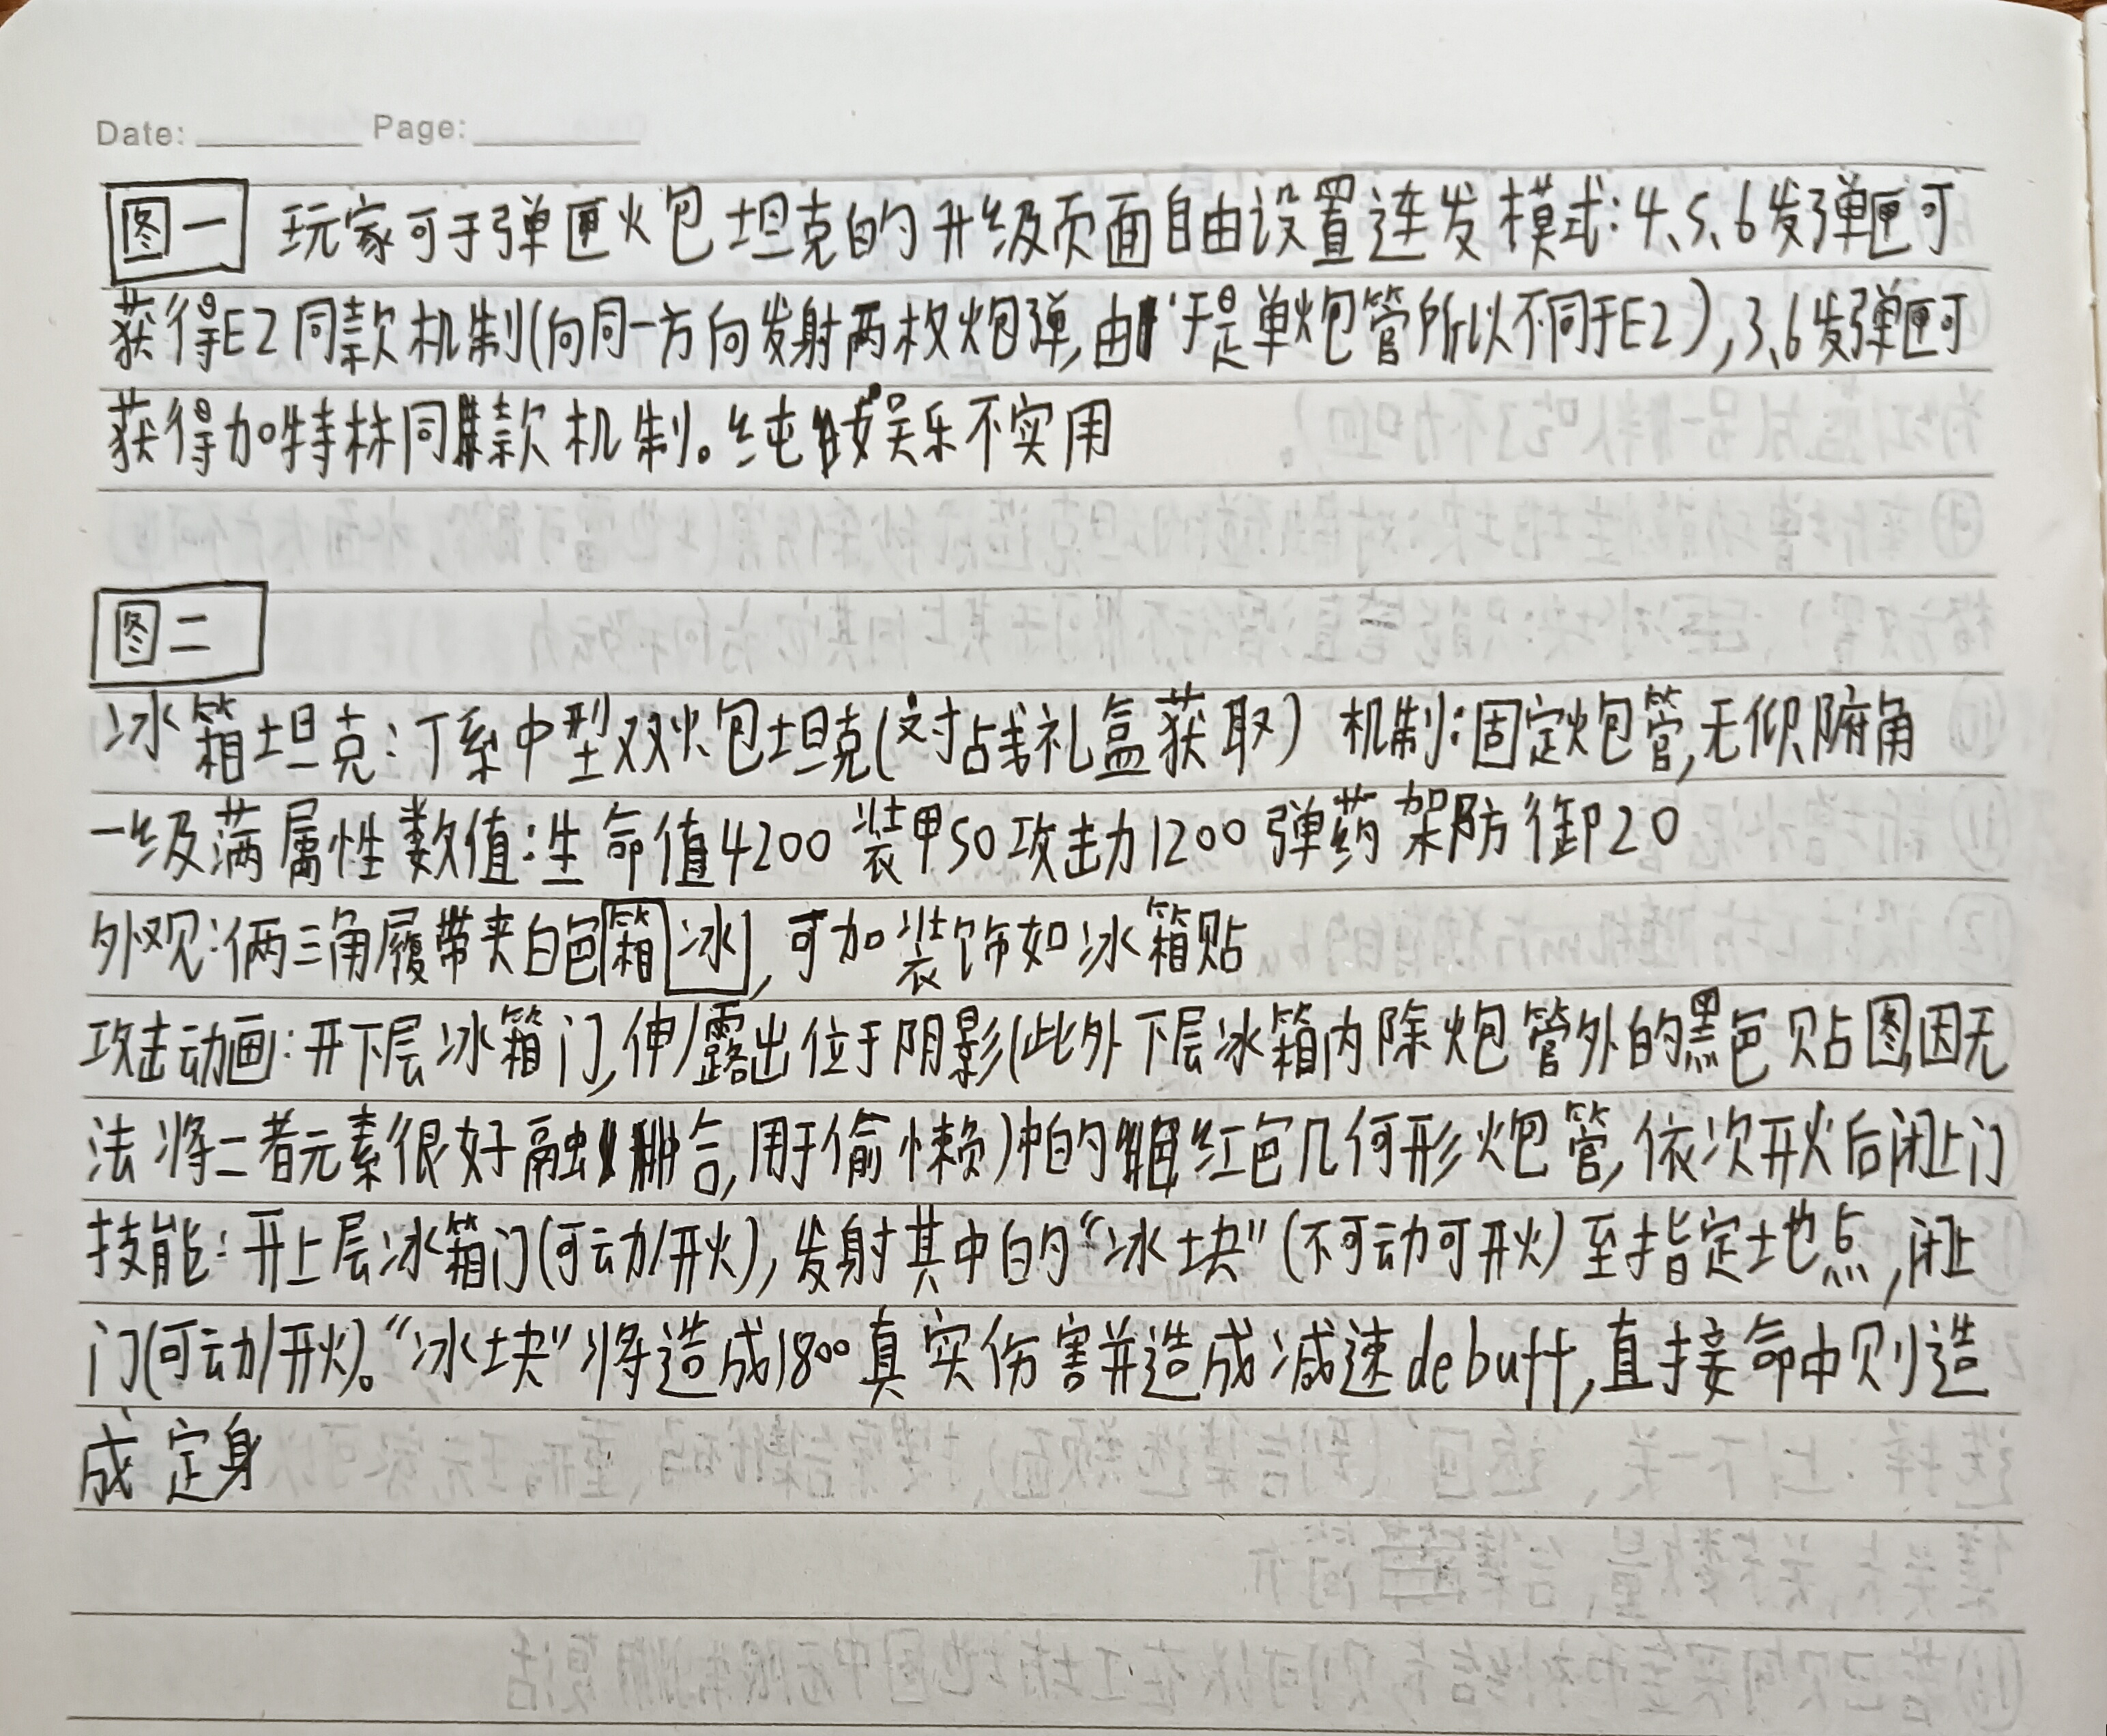 Date: Page:
图一 玩家可于弹匣火包坦克的升级页面自由设置连发模式:4、5、6发弹匣可
获得E2同款机制(向同一方向发射两枚炮弹,由于是单炮管所以不同于E2),3、6发弹匣可
获得加特林同款机制。纯娱乐不实用
图二
冰箱坦克:丁系中型双火包坦克(对战礼盒获取) 机制:固定炮管,无仰腑角
一级满属性数值:生命值4200 装甲50攻击力1200 弹药架防御20
外观:俩三角履带夹白色箱冰,可加装饰如冰箱贴
攻击动画:开下层冰箱门,伸/露出位于阴影(此外下层冰箱内除炮管外的黑色贴图,因无
法将二者元素很好融合,用于偷懒)中的红色几何形炮管,依次开火后闭上门
技能:开上层冰箱门(可动/开火),发射其中的“冰块”(不可动可开火)至指定地点,闭上
门(可动/开火)。“冰块”将造成1800真实伤害并造成减速debuff,直接命中则造
成定身